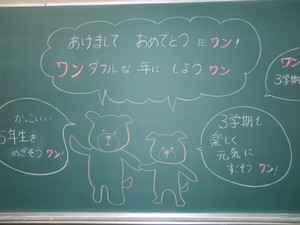 あけまして おめでとう だワン!
ワンダフルな 年に しよう ワン
ワン
3学期
かっこいい
5年生を
めざそう ワン!
3学期も
楽しく
元気に
すごそう ワン!